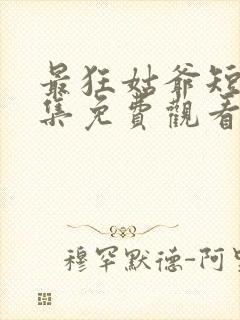 最狂姑爺短
集免費觀看
穆罕默德-阿